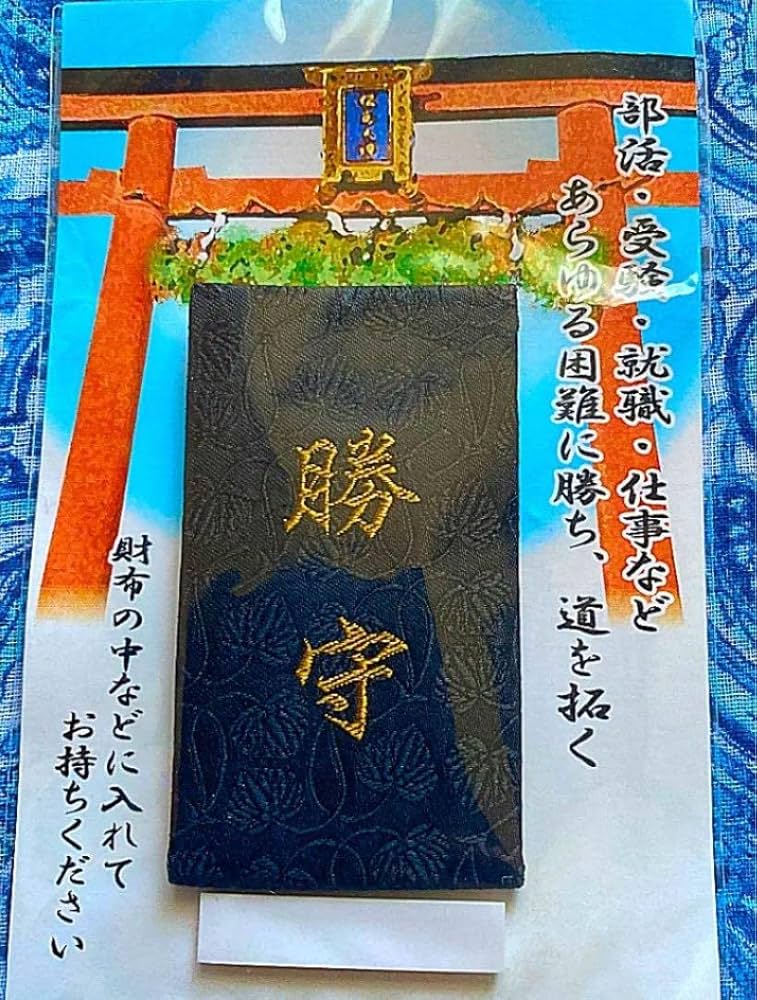 部活・受験・就職・仕事など
あらゆる困難に勝ち、道を拓く
勝守
財布の中などに入れて
お持ちください